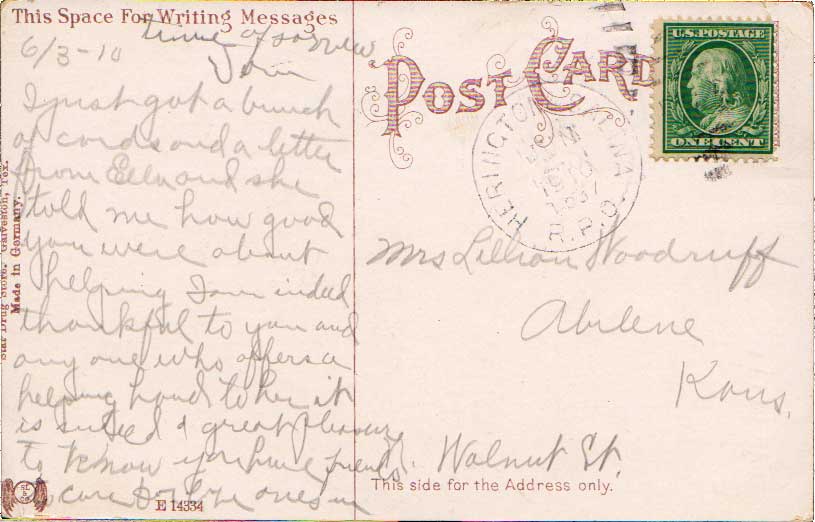 This Space For Writing Messages
time of sorrow
6/3-10
John
I just got a bunch
of cards and a letter
from Ella and she
told me how good
you were about
helping I am indeed
thankful to you and
any one who offers a
helping hand to her it
is indeed a great pleasure
to know you have friends
to care for love ones in
Star Drug Store, Galveston, Tex.
Made in Germany.
E 14334
POST CARD
U.S. POSTAGE
ONE CENT
HERINGTON
R.P.O.
1910
Mrs Lillian Woodruff
Abilene
Kans.
Walnut St.
This side for the Address only.